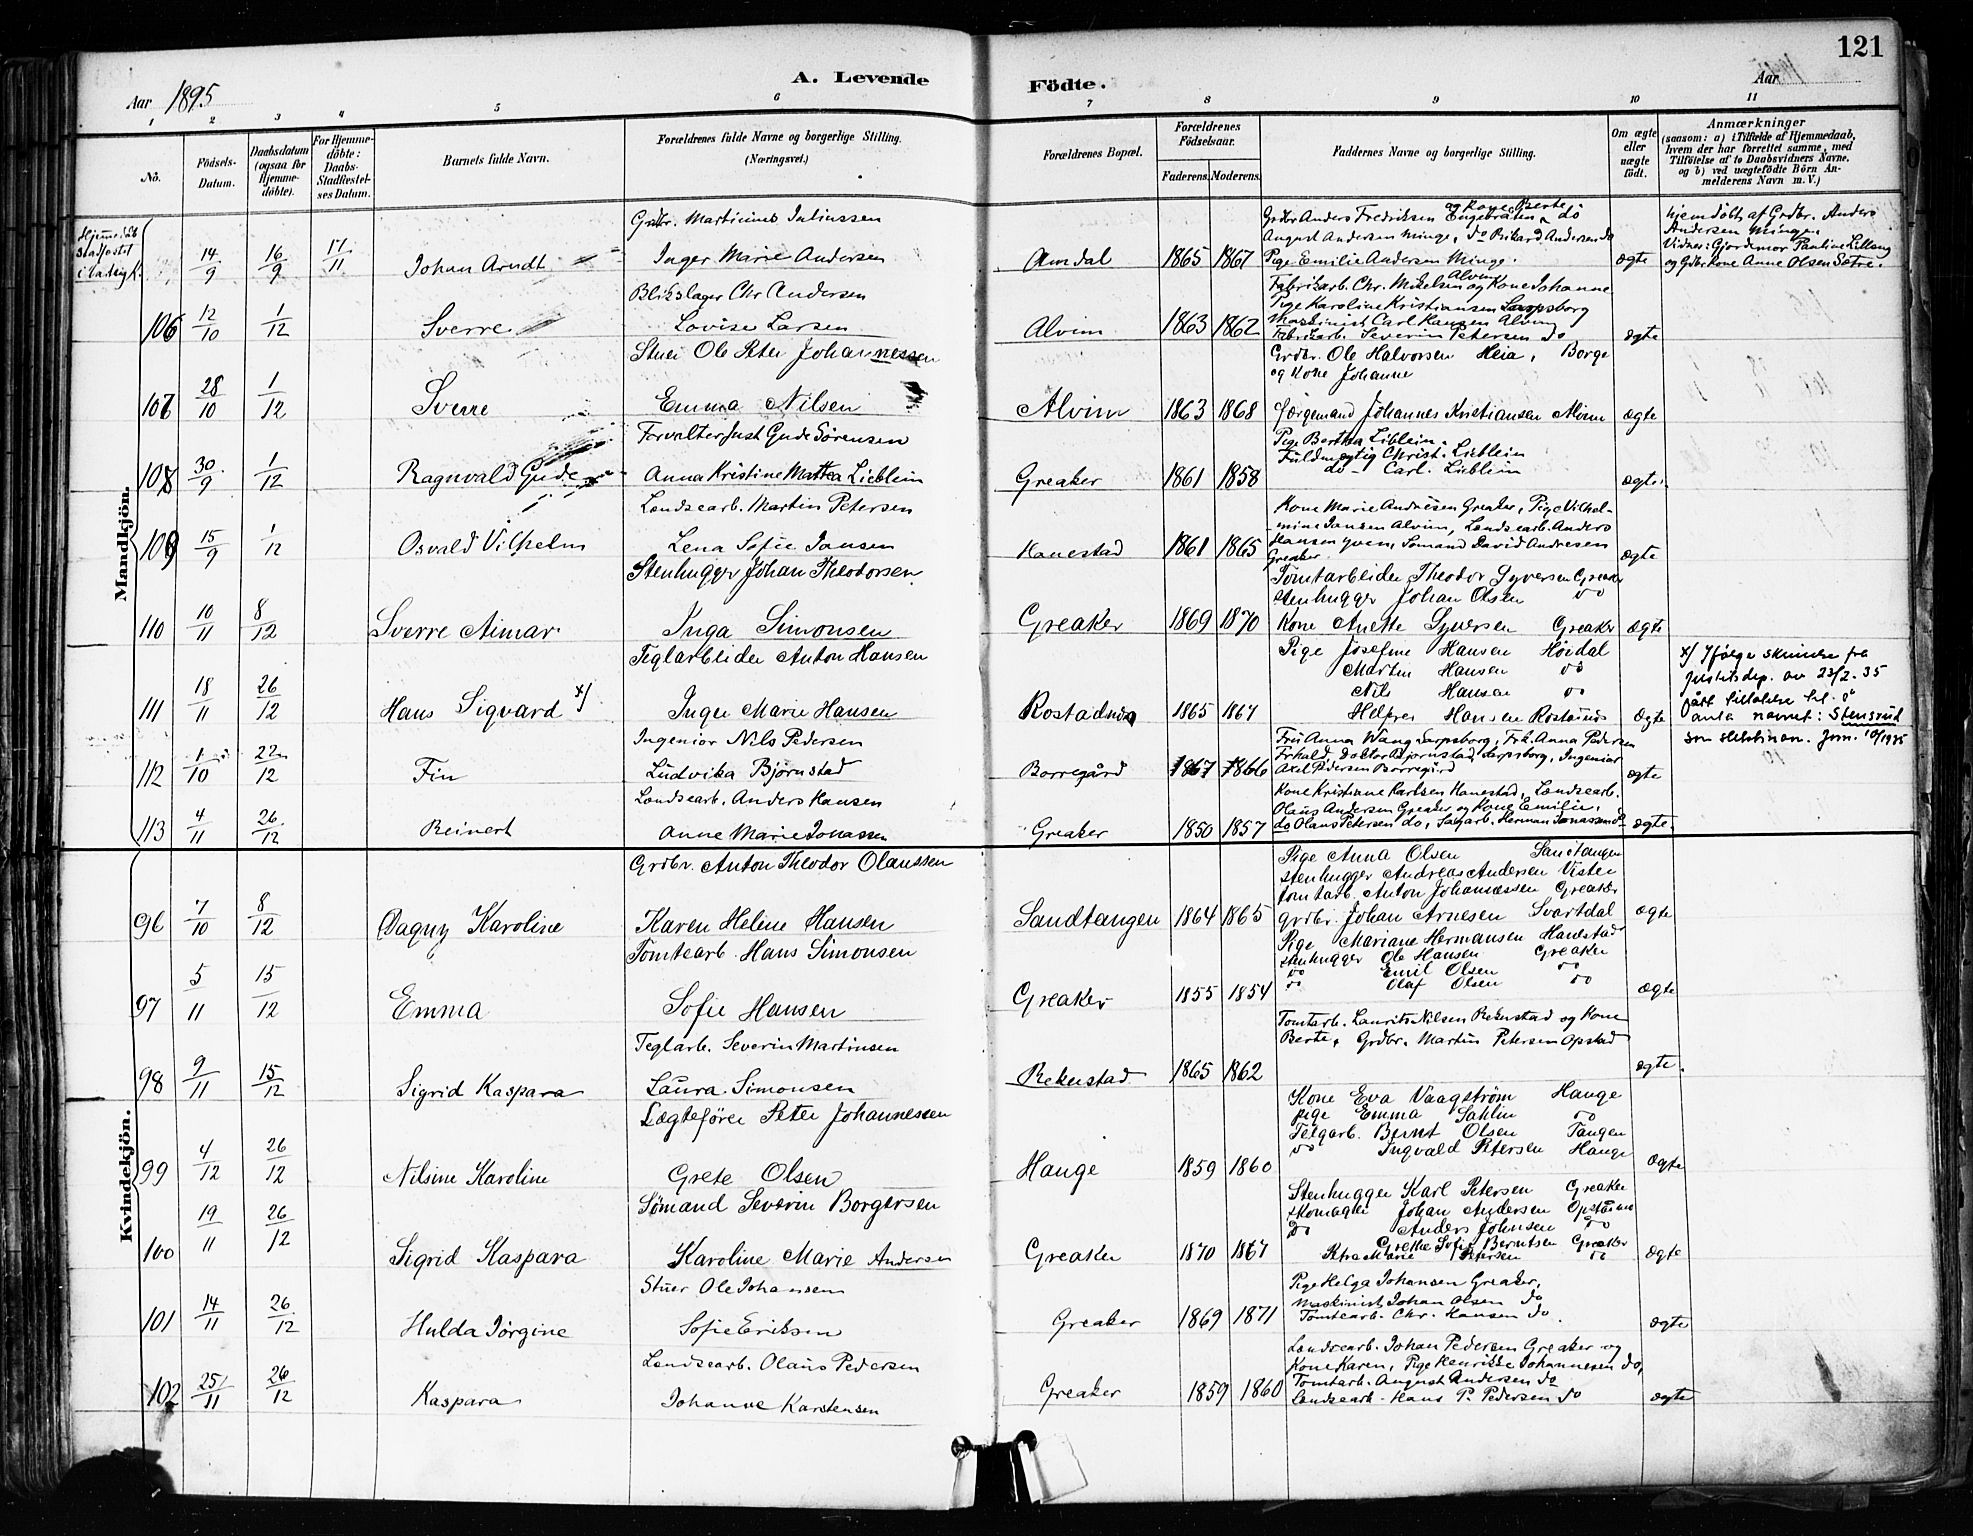 121
A. Levende Födte.
Aar 1895
Aar
1 2 3 4 5 6 7 8 9 10 11
No.
Födsels-Datum.
Daabsdatum (ogsaa for Hjemme-döbte).
For Hjemme-döbte: Daabs-Stadfæstel-ses Datum.
Barnets fulde Navn.
Forældrenes fulde Navne og borgerlige Stilling. (Næringsvei.)
Forældrenes Bopæl.
Forældrenes Födselsaar.
Faderens. Moderens.
Faddernes Navne og borgerlige Stilling.
Om ægte eller uægte födt.
Anmærkninger
(saasom: a) i Tilfælde af Hjemmedaab, hvem der har forrettet samme, med Tilföielse af to Daabsvidners Navne, og b) ved uægtefödte Börn An-melderens Navn m. V.)
Mandkjön.
Hjemmedöb stadfæstet
14/9 16/9 17/11 Johan Arndt
Grdbr. Martinius Juliussen
Inger Marie Andersen
Amdal 1865 1867
Grdbr Anders Fredriksen Engebraaten og Kone Berte do
August Andersen Minge, do Rikard Andersen do
Pige Emilie Andersen Minge.
ægte
hjemdöbt af Grdbr. Anders
Andersen Minge.
Vidner: Gjordemor Pauline Lilleng
og Gdbr Kone Anne Olsen Sætre.
106 12/10 1/12 Sverre
Blikslager Chr Andersen
Lovise Larsen
Alvim 1863 1862
Fabrikarb. Chr. Mikelsen Alvim og Kone Johanne
Pige Karoline Kristiansen Sarpsborg
Maskinist Carl Hansen Alvim
Fabrikarb. Severin Petersen do
ægte
107 28/10 1/12 Sverre
Stuer Ole Peter Johannessen
Emma Nilsen
Alvim 1863 1868
Grdbr. Ole Halvorsen Heia, Borge
og Kone Johanne
Færgemand Johannes Kristiansen Alvim
ægte
108 30/9 1/12 Ragnvald Gude
Forvalter Just Gude Sørensen
Anna Kristine Mattea Lieblein
Greaker 1861 1858
Pige Bertha Lieblein.
Fuldmægtig Christ. Lieblein
do - Carl. Lieblein
ægte.
109 15/9 1/12 Osvald Vilhelm
Landsearb. Martin Petersen
Lena Sofie Jansen
Hanestad 1861 1865
Kone Marie Andresen Greaker, Pige Vilhel-
-mine Jansen Alvim, Landsearb. Anders
Hansen Yven, Sømand David Andresen
Greaker.
ægte
110 10/11 8/12 Sverre Aimar
Stenhugger Johan Theodorsen
Inga Simonsen
Greaker 1869 1870
Tomtarbeider Theodor Syversen Greaker
Stenhugger Johan Olsen do
Kone Anette Syversen Greaker
ægte
111 18/11 26/12 Hans Sigvard x)
Teglarbeider Anton Hansen
Inger Marie Hansen
1865 1867
Pige Josefine Hansen Höidal
Martin Hansen do
Nils Hansen do
Hansen
ægte
x) Ifølge skrivelse fra
justitsdep. av 23/2-35
gått tillatelse til å
anta navnet: Stensrud
som slektsnavn. Jour. 10/1935
112 1/10 22/12 Fin
Ingeniør Nils Pedersen
Ludvika Bjørnstad
Borregård 1867 1866
Fru Anna Wang Sarpsborg, Frk. Anna Pedersen
Doktor Bjørnstad, Sarpsborg, Ingeniør
Axel Pedersen Borregård
ægte
113 4/11 26/12 Reinert
Landsearb. Anders Hansen
Anne Marie Jonassen
Greaker 1850 1857
Kone Kristiane Karlsen Hanestad, Landsearb.
Olaus Andersen Greaker og Kone Emilie,
do Olaus Petersen do, Sagarb. Herman Jonassen do
ægte.
Kvindekjön.
96 7/10 8/12 Dagny Karoline
Grdbr. Anton Theodor Olaussen
Karen Helene Hansen
Sandtangen 1864 1865
Pige Anna Olsen Sandtangen
Stenhugger Andreas Andersen Vister
Tomtarb. Anton Johannessen Greaker
Grdbr. Johan Arnesen Svartdal
ægte
97 5/11 15/12 Emma
Tomtearb. Hans Simonsen
Sofie Hansen
Greaker 1855 1854
Pige Mariane Hermansen Hanestad
Stenhugger Ole Hansen Greaker
do Emil Olsen do
do Olaf Olsen do
ægte
98 9/11 15/12 Sigrid Kaspara
Teglarb. Severin Martinsen
Laura Simonsen
Rekustad 1865 1862
Tomtarb. Laurits Nilsen Rekustad og Kone
Berte, Grdbr. Martin Petersen Opstad
ægte.
99 4/12 26/12 Nilsine Karoline
Lægtefører Peter Johannessen
Grete Olsen
Hauge 1859 1860
Kone Eva Vaagstrøm Hauge
Pige Emma Sahlin do
Telgarb. Bernt Olsen Tangen
do Ingvald Petersen Hauge
ægte
100 19/11 26/12 Sigrid Kaspara
Sømand Severin Borgersen
Karoline Marie Andersen
Greaker 1870 1867
Stenhugger Karl Petersen Greaker
Skomager Johan Andersen
do Anders Johnsen do
Grethe Sofie Berntsen Greaker
Marie Petersen do
ægte
101 14/11 26/12 Hulda Jørgine
Stuer Ole Johansen
Sofie Eriksen
Greaker 1869 1871
Pige Helga Johansen Greaker,
Maskinist Johan Olsen do
Tomtearb. Chr. Hansen do.
ægte
102 25/11 26/12 Kaspara
Landsearb. Olaus Pedersen
Johanne Karstensen
Greaker 1859 1860
Landsearb. Johan Pedersen Greaker og
Kone Karen, Pige Henrikke Johannesen do,
Tomtarb. August Andersen do
Landsearb. Hans P. Pedersen do
ægte